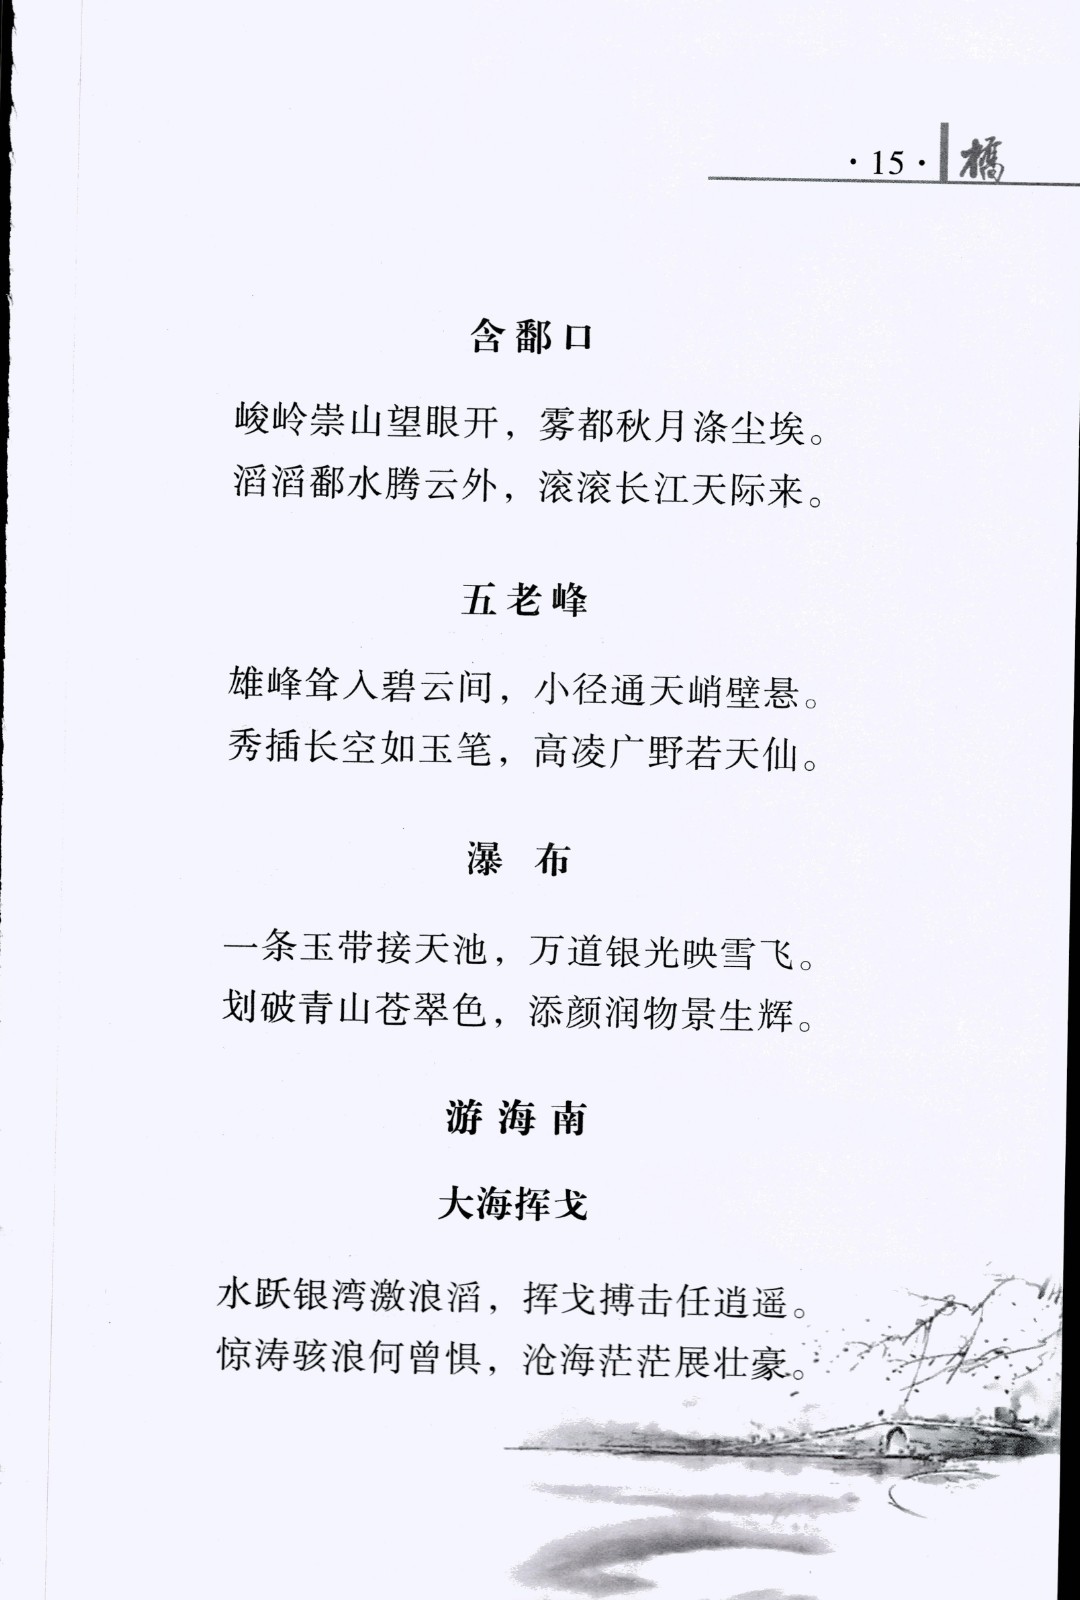 ·15· 橋
含鄱口
峻岭崇山望眼开，雾都秋月涤尘埃。
滔滔鄱水腾云外，滚滚长江天际来。
五老峰
雄峰耸入碧云间，小径通天峭壁悬。
秀插长空如玉笔，高凌广野若天仙。
瀑 布
一条玉带接天池，万道银光映雪飞。
划破青山苍翠色，添颜润物景生辉。
游海南
大海挥戈
水跃银湾激浪滔，挥戈搏击任逍遥。
惊涛骇浪何曾惧，沧海茫茫展壮豪。